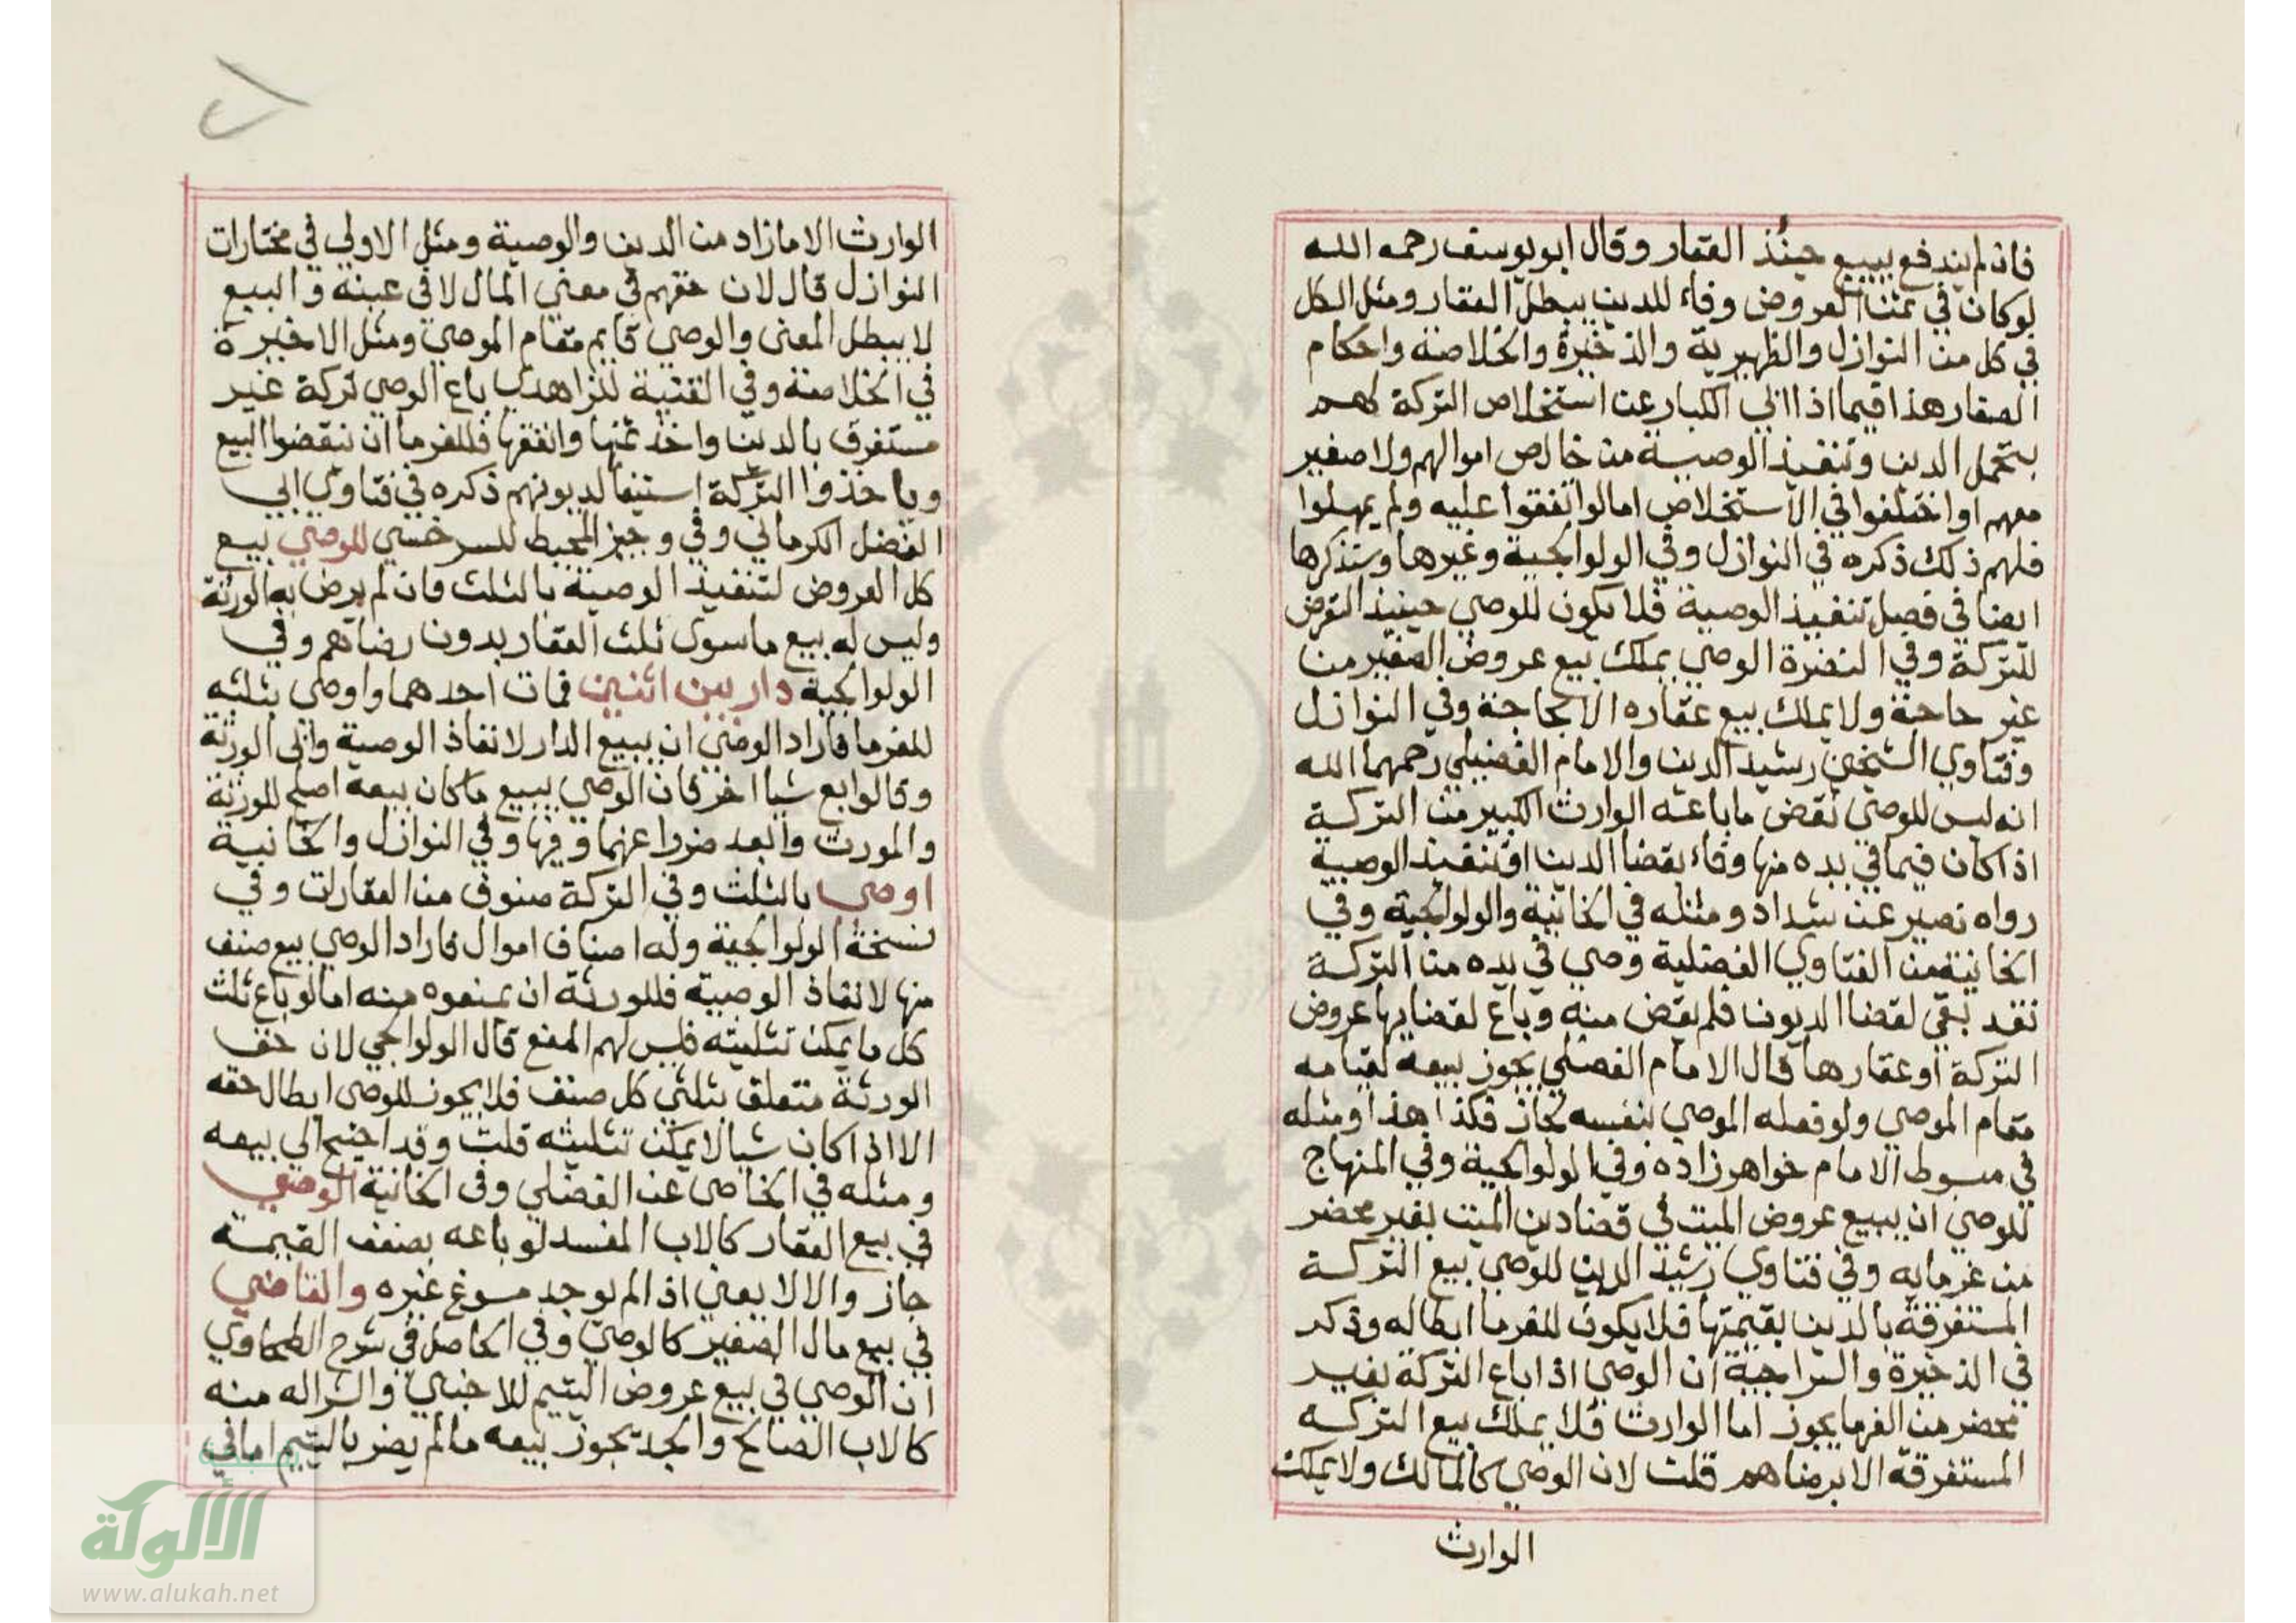 فان لم يندفع يبيع حينئذ العقار وقال ابو يوسف رحمه الله
لو كان في ثمن العروض وفاء للدين يبطل العقار ومثل الكل
في كل من النوازل والظهيرية والذخيرة والخلاصة واحكام
الصغار هذا فيما اذا ابي الكبار عن استخلاص التركة لهم
بتحمل الدين وتنفيذ الوصية من خالص اموالهم ولا صغير
معهم او اختلفوا في الاستخلاص اما لو اتفقوا عليه ولم يمهلوا
فلهم ذلك ذكره في النوازل وفي الولوالجية وغيرها وسنذكرها
ايضا في فصل تنفيذ الوصية فلا يكون للوصي حينيذ التعرض
للتركة وفي الوصي يملك بيع عروض الصغير من
غير حاجة ولا يملك بيع عقاره الا لحاجة وفي النوازل
وفتاوي الشيخين رشيد الدين والامام الفضيلي رحمهما الله
انه ليس للوصي نقض ما باعته الوارث الكبير من التركة
اذا كان فيما في يده منها وفاء بقضا الدين او تنفيذ الوصية
رواه نصير عن شداد ومثله في الخانية والولوالجية وفي
الخانية من الفتاوي الفضلية وصي في يده من التركة
نقد يفي لقضا الديون فلم يقض منه وباع لقضايها عروض
التركة او عقارها قال الامام الفضلي يجوز بيعه لقيامه
مقام الموصي ولو فعله الموصي بنفسه لجاز فكذا هذا ومثله
في مبسوط الامام خواهر زاده وفي الولوالجية وفي المنهاج
للوصي ان يبيع عروض الميت في قضا دين الميت بغير محضر
من غرمايه وفي فتاوي رشيد الدين للوصي بيع التركة
المستغرقة بالدين بقيمتها فلا يكون للغرما ابطاله وذكر
في الذخيرة والسراجية ان الوصي اذا باع التركة بغير
محضر من الغرما يجوز اما الوارث فلا يملك بيع التركه
المستغرقة الا برضاهم قلت لان الوصي كالمالك ولا يملك
الوارث
الوارث الا ما زاد من الدين والوصية ومثل الاولي في مختارات
النوازل قال لان حقهم في معني المال لا في عينه والبيع
لا يبطل المعني والوصي قايم مقام الموصي ومثل الاخيرة
في الخلاصة وفي القنية للزاهدي باع الوصي تركة غير
مستغرق بالدين واخذ ثمنها وانفقها فللغرما ان ينقضوا البيع
وياخذوا التركة استيفا لديونهم ذكره في فتاوي ابي
الفضل الكرماني وفي وجيز المحيط للسرخسي للوصي بيع
كل العروض لتنفيذ الوصية بالثلث فان لم يرض به الورثة
وليس له بيع ما سوي ثلث العقار بدون رضاهم وفي
الولوالجية دار بين اثنين فمات احدهما واوصي بثلثه
للغرما فاراد الوصي ان يبيع الدار لانفاذ الوصية وابي الورثة
وقالوا بع شيا اخر فان الوصي يبيع ما كان بيعه اصلح للورثة
والمورث وابعد ضررا عنهما وفيها وفي النوازل والخانية
اوصي بالثلث وفي التركة صنوف من العقارات وفي
نسخة الولوالجية وله اصناف اموال فاراد الوصي بيع صنف
منها لانفاذ الوصية فللورثة ان يمنعوه منه اما لو باع ثلث
كل ما يمكن تثليثه فليس لهم المنع قال الولوالجي لان حق
الورثة متعلق بثلثي كل صنف فلا يجوز للوصي ابطال حقه
الا اذا كان شيا لا يمكن تثليثه قلت وقد احتيج الي بيعه
ومثله في الخاصي عن الفضلي وفي الخانية الوصي
في بيع العقار كالاب المفسد لو باعه بضعف القيمة
جاز والا لا يعني اذا لم يوجد مسوغ غيره والقاضي
في بيع مال الصغير كالوصي وفي الحاصل في شرح الطحاوي
ان الوصي في بيع عروض اليتيم للاجنبي والشرا له منه
كالاب الصالح والجد يجوز بيعه ما لم يضر باليتيم اما في
شبكة
الألوكة
www.alukah.net